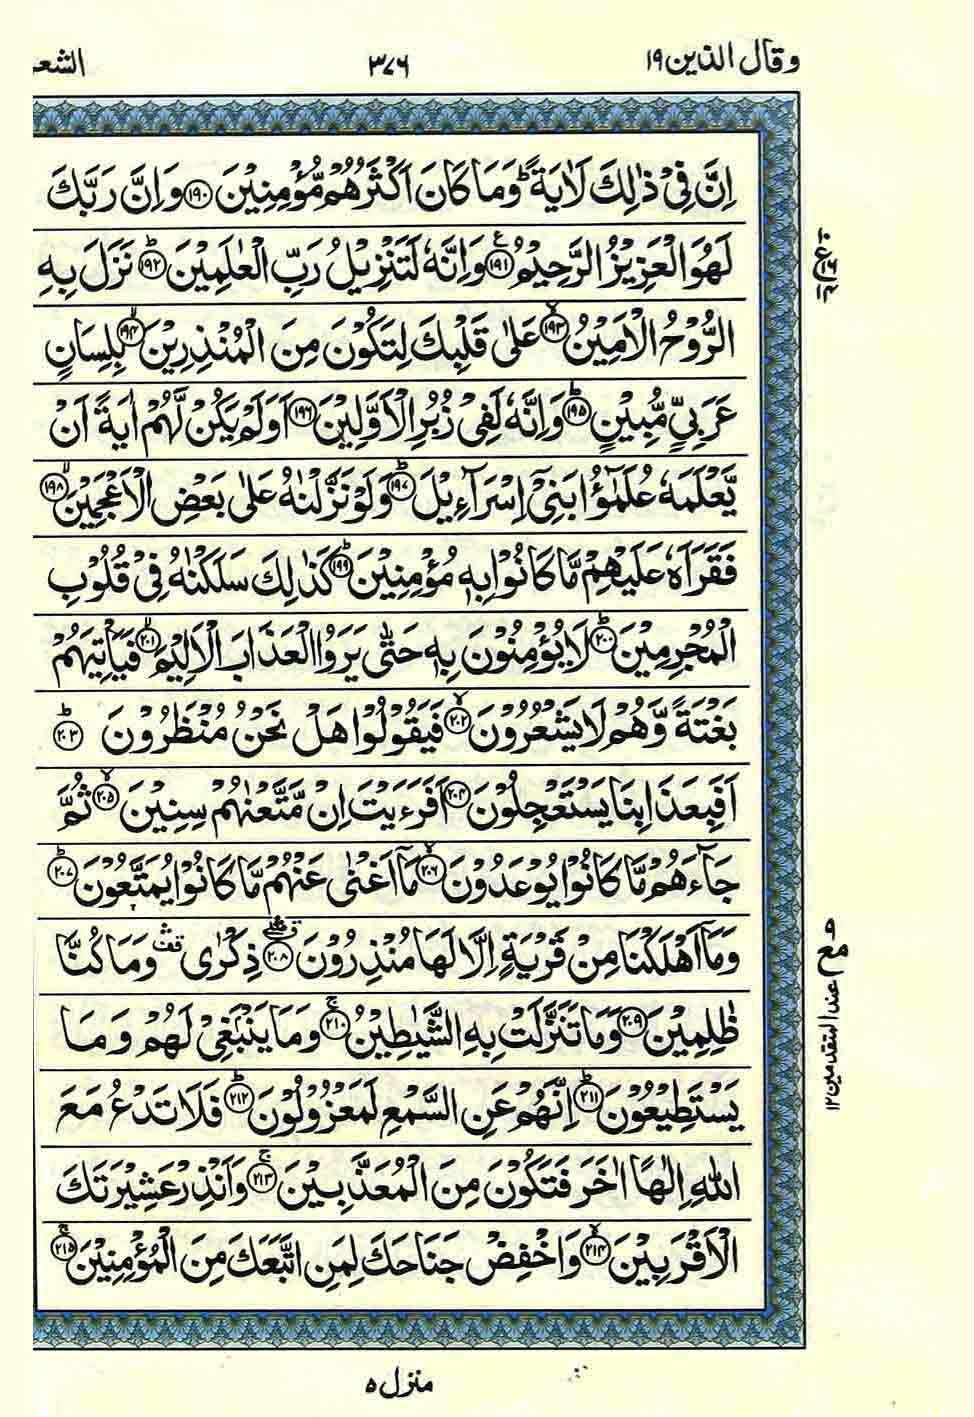 وقال الذین ۱۹
۳۷۶
الشعر
اِنَّ فِیْ ذٰلِكَ لَاٰیَةً ؕ وَمَا كَانَ اَكْثَرُهُمْ مُّؤْمِنِیْنَ ﴿۱۹۰﴾ وَاِنَّ رَبَّكَ
لَهُوَ الْعَزِیْزُ الرَّحِیْمُ ﴿۱۹۱﴾ ع وَاِنَّهٗ لَتَنْزِیْلُ رَبِّ الْعٰلَمِیْنَ ﴿۱۹۲﴾ؕ نَزَلَ بِهِ
الرُّوْحُ الْاَمِیْنُ ﴿۱۹۳﴾ۙ عَلٰی قَلْبِكَ لِتَكُوْنَ مِنَ الْمُنْذِرِیْنَ ﴿۱۹۴﴾ۙ بِلِسَانٍ
عَرَبِیٍّ مُّبِیْنٍ ﴿۱۹۵﴾ؕ وَاِنَّهٗ لَفِیْ زُبُرِ الْاَوَّلِیْنَ ﴿۱۹۶﴾ اَوَلَمْ یَكُنْ لَّهُمْ اٰیَةً اَنْ
یَّعْلَمَهٗ عُلَمٰٓؤُا بَنِیْۤ اِسْرَآءِیْلَ ﴿۱۹۷﴾ؕ وَلَوْ نَزَّلْنٰهُ عَلٰی بَعْضِ الْاَعْجَمِیْنَ ﴿۱۹۸﴾ۙ
فَقَرَاَهٗ عَلَیْهِمْ مَّا كَانُوْا بِهٖ مُؤْمِنِیْنَ ﴿۱۹۹﴾ؕ كَذٰلِكَ سَلَكْنٰهُ فِیْ قُلُوْبِ
الْمُجْرِمِیْنَ ﴿۲۰۰﴾ؕ لَا یُؤْمِنُوْنَ بِهٖ حَتّٰی یَرَوُا الْعَذَابَ الْاَلِیْمَ ﴿۲۰۱﴾ۙ فَیَاْتِیَهُمْ
بَغْتَةً وَّهُمْ لَا یَشْعُرُوْنَ ﴿۲۰۲﴾ۙ فَیَقُوْلُوْا هَلْ نَحْنُ مُنْظَرُوْنَ ﴿۲۰۳﴾ؕ
اَفَبِعَذَابِنَا یَسْتَعْجِلُوْنَ ﴿۲۰۴﴾ اَفَرَءَیْتَ اِنْ مَّتَّعْنٰهُمْ سِنِیْنَ ﴿۲۰۵﴾ۙ ثُمَّ
جَآءَهُمْ مَّا كَانُوْا یُوْعَدُوْنَ ﴿۲۰۶﴾ۙ مَاۤ اَغْنٰی عَنْهُمْ مَّا كَانُوْا یُمَتَّعُوْنَ ﴿۲۰۷﴾ؕ
وَمَاۤ اَهْلَكْنَا مِنْ قَرْیَةٍ اِلَّا لَهَا مُنْذِرُوْنَ ﴿۲۰۸﴾ ذِكْرٰی قف وَمَا كُنَّا
ظٰلِمِیْنَ ﴿۲۰۹﴾ وَمَا تَنَزَّلَتْ بِهِ الشَّیٰطِیْنُ ﴿۲۱۰﴾ۚ وَمَا یَنْۢبَغِیْ لَهُمْ وَمَا
یَسْتَطِیْعُوْنَ ﴿۲۱۱﴾ؕ اِنَّهُمْ عَنِ السَّمْعِ لَمَعْزُوْلُوْنَ ﴿۲۱۲﴾ؕ فَلَا تَدْعُ مَعَ
اللّٰهِ اِلٰهًا اٰخَرَ فَتَكُوْنَ مِنَ الْمُعَذَّبِیْنَ ﴿۲۱۳﴾ۚ وَاَنْذِرْ عَشِیْرَتَكَ
الْاَقْرَبِیْنَ ﴿۲۱۴﴾ۙ وَاخْفِضْ جَنَاحَكَ لِمَنِ اتَّبَعَكَ مِنَ الْمُؤْمِنِیْنَ ﴿۲۱۵﴾ۚ
مع ۹ عند المتقدمین ۱۲
منزل ۵